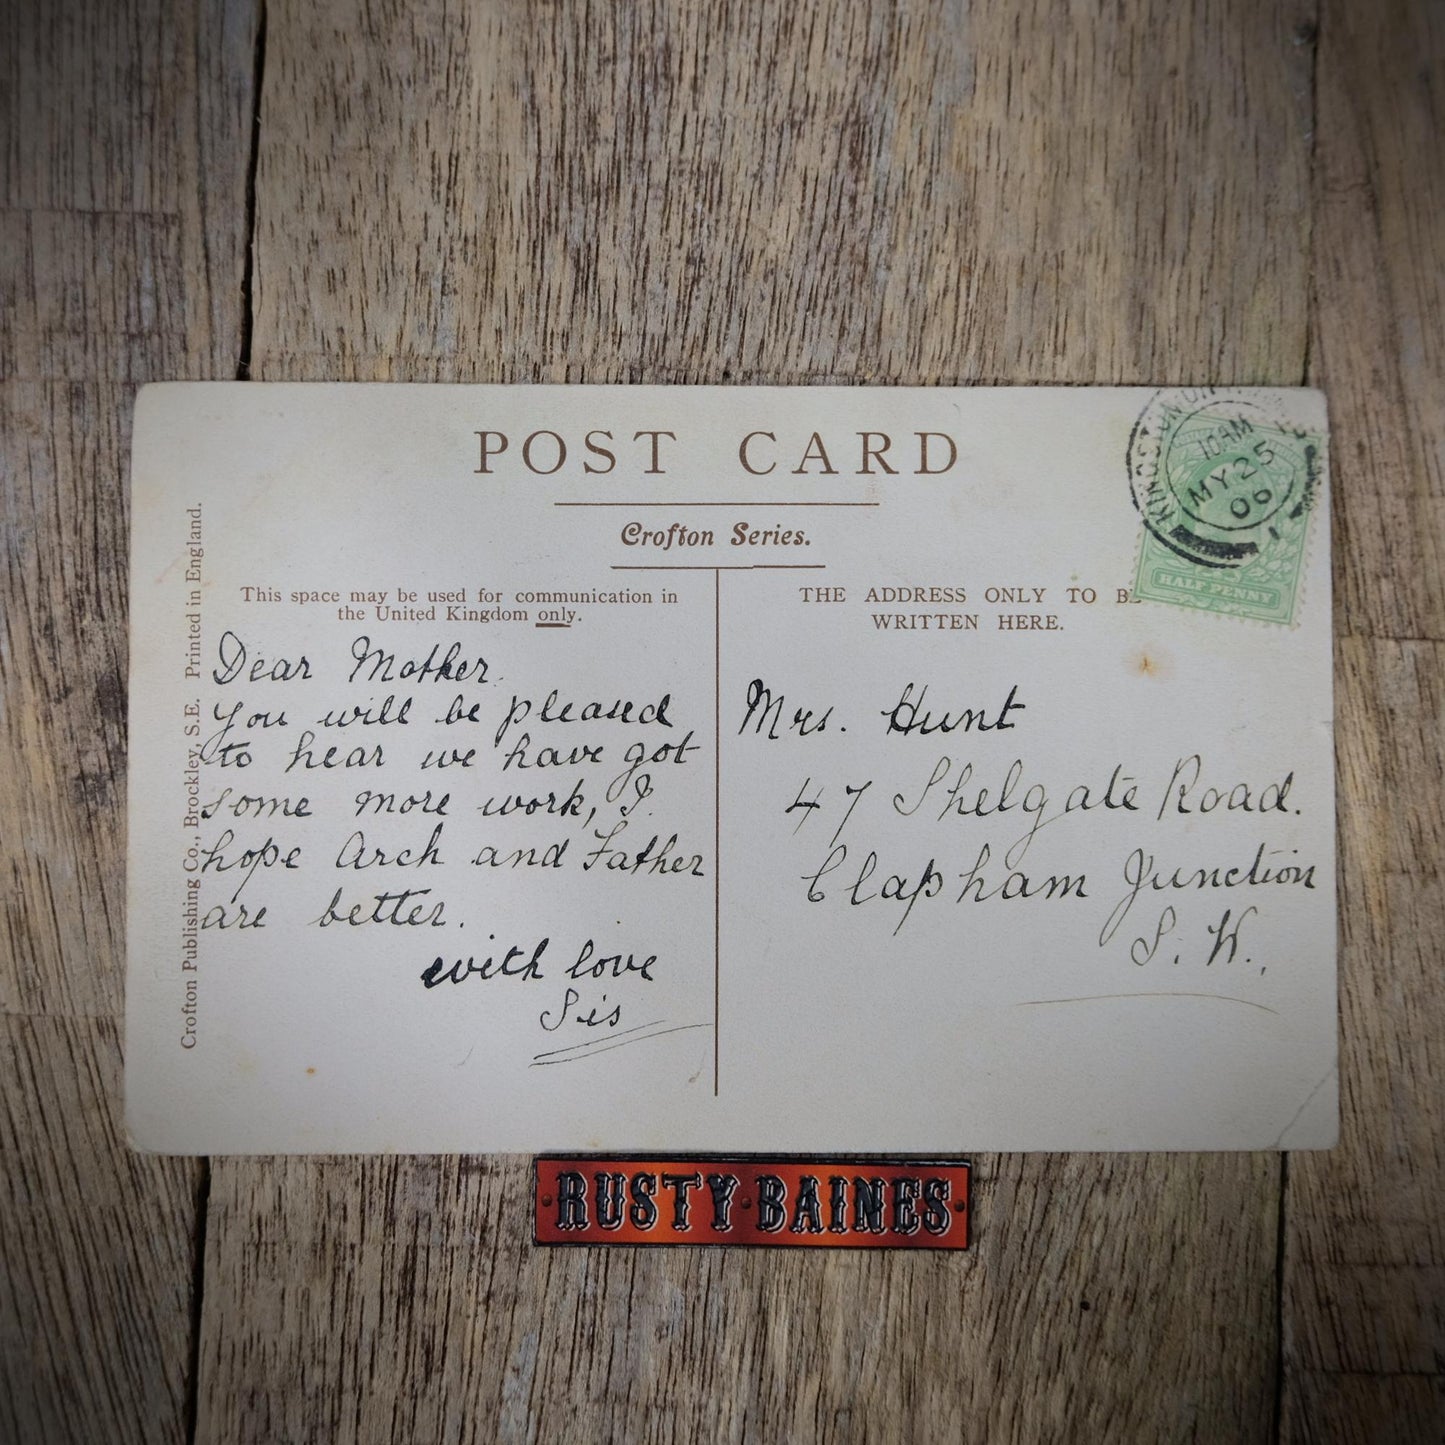 POST CARD
Crofton Series.
This space may be used for communication in
the United Kingdom only.
THE ADDRESS ONLY TO BE
WRITTEN HERE.
Crofton Publishing Co., Brockley, S.E. Printed in England.
Dear Mother.
You will be pleased
to hear we have got
some more work, I.
hope Arch and Father
are better.
with love
Sis
Mrs. Hunt
47 Shelgate Road.
Clapham Junction
S. W.
KINGSTON ON
10 AM
MY 25
06
1
HALF PENNY
RUSTY·BAINES